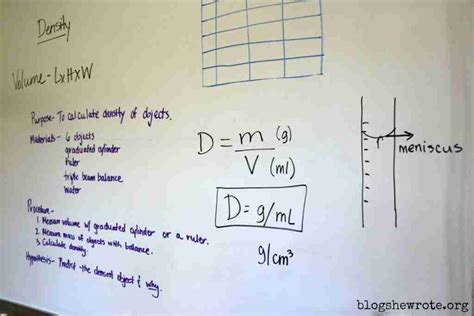 Density
Volume - LxHxW
Purpose - To calculate density of objects.
Materials - 6 objects
graduated cylinder
ruler
triple beam balance
water
Procedure -
1. Measure volume w/ graduated cylinder or a ruler.
2. Measure mass of objects with balance.
3. Calculate density.
Hypothesis - Predict - the densest object & why.
D = m (g)
V (ml)
D = g/mL
g/cm³
meniscus
blogshewrote.org